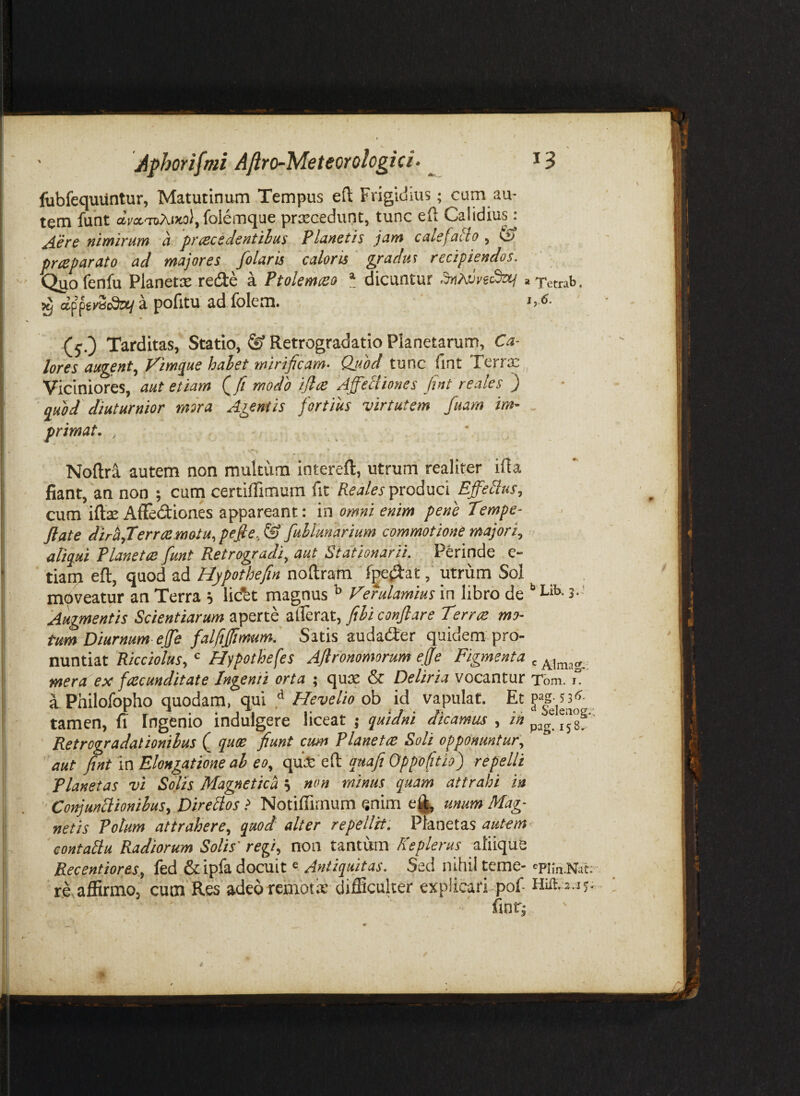 Aphorifmi Aftro-Meteorologici. 13
fubfequuntur, Matutinum Tempus eft Frigidius ; cum au-
tem funt ἀνατολικοὶ, folémque præcedunt, tunc eft Calidius :
Aëre nimirum à præcedentibus Planetis jam calefacto , &
præparato ad majores folaris caloris gradus recipiendos.
Quo fenfu Planetæ recte à Ptolemæo a dicuntur θηλύνεσθαι a Tetrab.
κ᾽ ἀῤῥενοῦσθαι à pofitu ad folem. 1,6.
(5.) Tarditas, Statio, & Retrogradatio Planetarum, Ca-
lores augent, Vimque habet mirificam. Quòd tunc fint Terræ
Viciniores, aut etiam (fi modò iftæ Affectiones fint reales )
quòd diuturnior mora Agentis fortiùs virtutem fuam im-
primat.
Noftrâ autem non multùm intereft, utrum realiter ifta
fiant, an non ; cum certiffimum fit Reales produci Effectus,
cum iftæ Affectiones appareant : in omni enim penè Tempe-
ftate dirâ,Terræ motu, pefte, & fublunarium commotione majori,
aliqui Planetæ funt Retrogradi, aut Stationarii. Perinde e-
tiam eft, quod ad Hypothefin noftram fpectat, utrùm Sol
moveatur an Terra ; licèt magnus b Verulamius in libro de b Lib. 3.
Augmentis Scientiarum apertè afferat, fibi conftare Terræ mo-
tum Diurnum effe falfiffimum. Satis audacter quidem pro-
nuntiat Ricciolus, c Hypothefes Aftronomorum effe Figmenta c Almag.
mera ex fæcunditate Ingenii orta ; quæ & Deliria vocantur Tom. 1.
à Philofopho quodam, qui d Hevelio ob id vapulat. Et pag. 536.
tamen, fi Ingenio indulgere liceat ; quidni dicamus , in d Selenog.
Retrogradationibus ( quæ fiunt cum Planetæ Soli opponuntur, pag. 158.
aut fint in Elongatione ab eo, quæ eft quafi Oppofitio) repelli
Planetas vi Solis Magneticâ ; non minus quam attrahi in
Conjunctionibus, Directos ? Notiffimum enim eft, unum Mag-
netis Polum attrahere, quod alter repellit. Planetas autem
contactu Radiorum Solis regi, non tantùm Keplerus aliique
Recentiores, fed & ipfa docuit e Antiquitas. Sed nihil teme- e Plin.Nat.
rè affirmo, cum Res adeò remotæ difficulter explicari pof- Hift. 2.15.
fint;